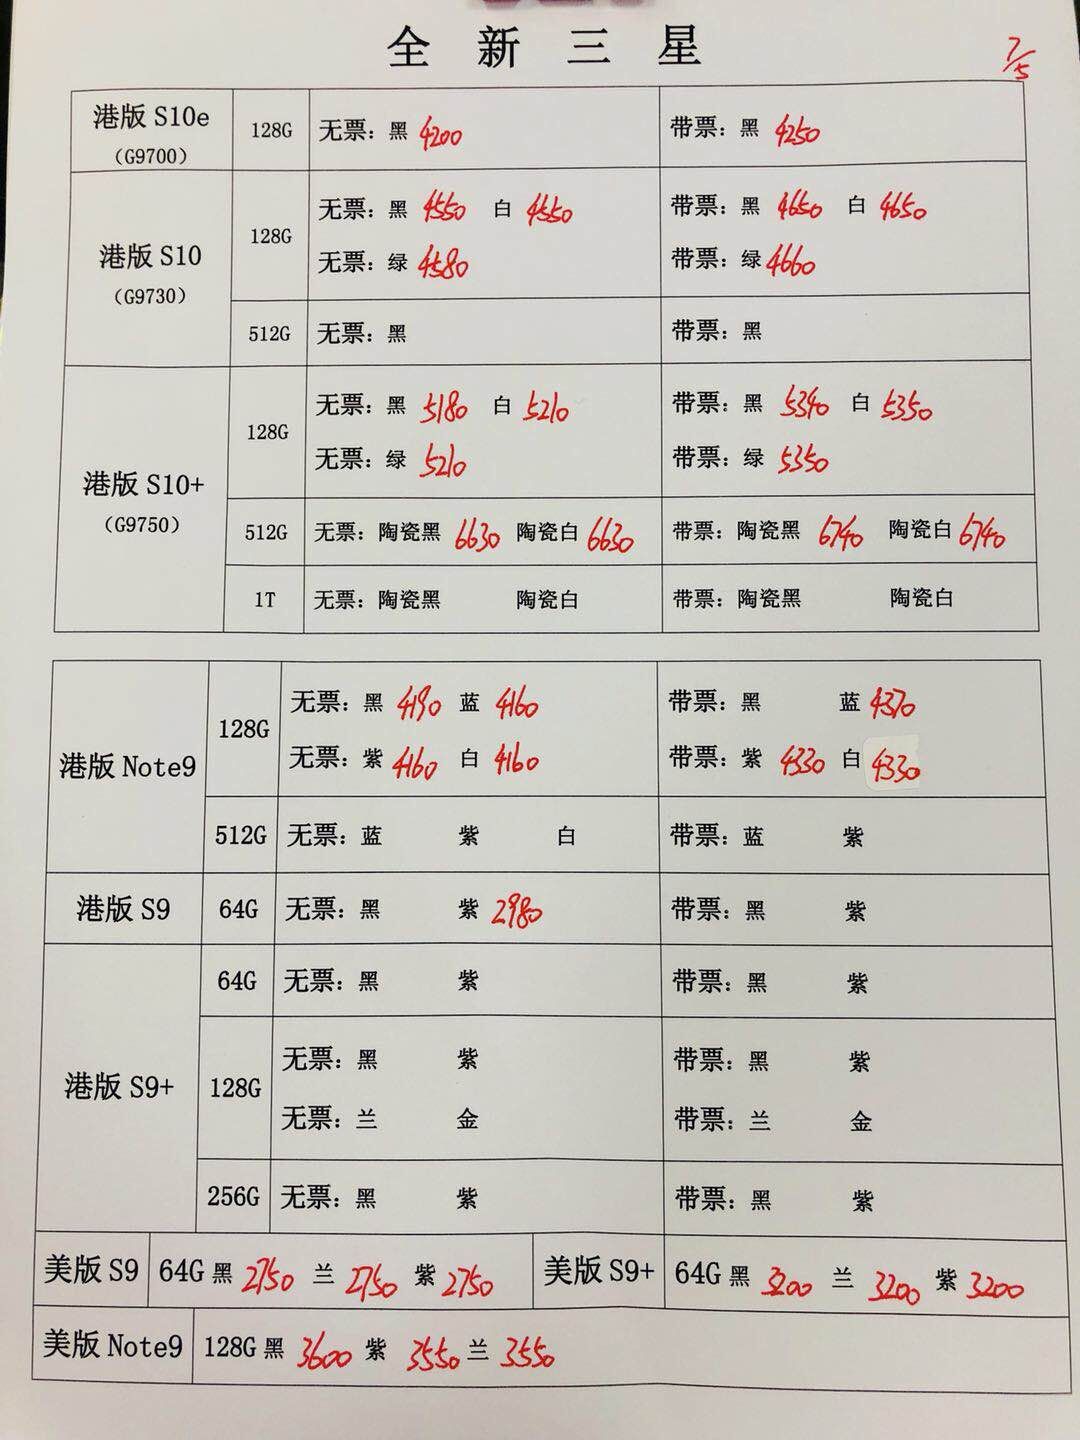 全新三星
7/5
港版 S10e
(G9700)
128G
无票：黑 4200
带票：黑 4250
港版 S10
(G9730)
128G
无票：黑 4550 白 4550
带票：黑 4650 白 4650
无票：绿 4580
带票：绿 4660
512G
无票：黑
带票：黑
港版 S10+
(G9750)
128G
无票：黑 5180 白 5210
带票：黑 5340 白 5350
无票：绿 5210
带票：绿 5350
512G
无票：陶瓷黑 6630 陶瓷白 6630
带票：陶瓷黑 6740 陶瓷白 6740
1T
无票：陶瓷黑 陶瓷白
带票：陶瓷黑 陶瓷白
港版 Note9
128G
无票：黑 4190 蓝 4160
带票：黑 蓝 4370
无票：紫 4160 白 4160
带票：紫 4330 白 4330
512G
无票：蓝 紫 白
带票：蓝 紫
港版 S9
64G
无票：黑 紫 2980
带票：黑 紫
港版 S9+
64G
无票：黑 紫
带票：黑 紫
128G
无票：黑 紫
带票：黑 紫
无票：兰 金
带票：兰 金
256G
无票：黑 紫
带票：黑 紫
美版 S9
64G 黑 2750 兰 2750 紫 2750
美版 S9+
64G 黑 3200 兰 3200 紫 3200
美版 Note9
128G 黑 3600 紫 3550 兰 3550